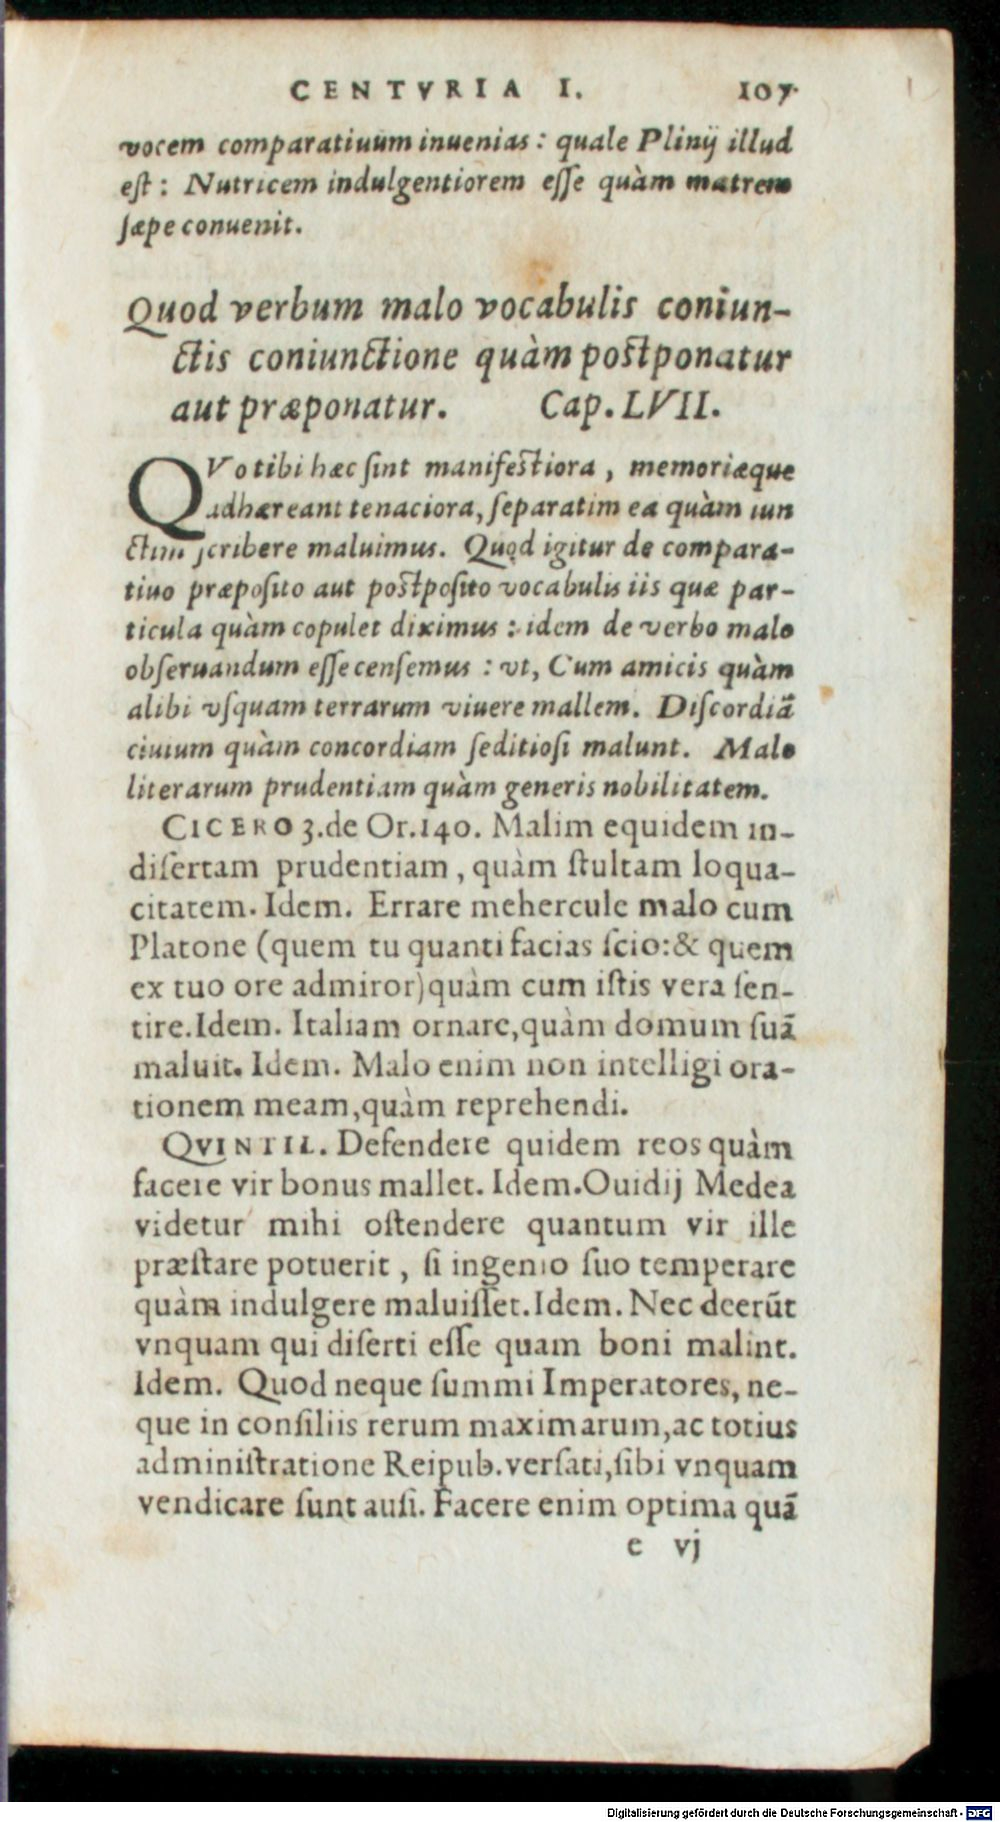 CENTVRIA I. 107
vocem comparatiuum inuenias: quale Plinij illud
est: Nutricem indulgentiorem esse quàm matrem
sæpe conuenit.
Quod verbum malo vocabulis coniun-
ctis coniunctione quàm postponatur
aut præponatur. Cap. LVII.
QVo tibi hæc sint manifestiora, memoriæque
adhæreant tenaciora, separatim ea quàm iun
ctim scribere maluimus. Quod igitur de compara-
tiuo præposito aut postposito vocabulis iis quæ par-
ticula quàm copulet diximus: idem de verbo malo
obseruandum esse censemus: vt, Cum amicis quàm
alibi vsquam terrarum viuere mallem. Discordiā
ciuium quàm concordiam seditiosi malunt. Malo
literarum prudentiam quàm generis nobilitatem.
CICERO 3. de Or. 140. Malim equidem in-
disertam prudentiam, quàm stultam loqua-
citatem. Idem. Errare mehercule malo cum
Platone (quem tu quanti facias scio: & quem
ex tuo ore admiror) quàm cum istis vera sen-
tire. Idem. Italiam ornare, quàm domum suā
maluit. Idem. Malo enim non intelligi ora-
tionem meam, quàm reprehendi.
QVINTIL. Defendere quidem reos quàm
facere vir bonus mallet. Idem. Ouidij Medea
videtur mihi ostendere quantum vir ille
præstare potuerit, si ingenio suo temperare
quàm indulgere maluisset. Idem. Nec deerūt
vnquam qui diserti esse quam boni malint.
Idem. Quod neque summi Imperatores, ne-
que in consiliis rerum maximarum, ac totius
administratione Reipub. versati, sibi vnquam
vendicare sunt ausi. Facere enim optima quā
e vj
Digitalisierung gefördert durch die Deutsche Forschungsgemeinschaft - DFG